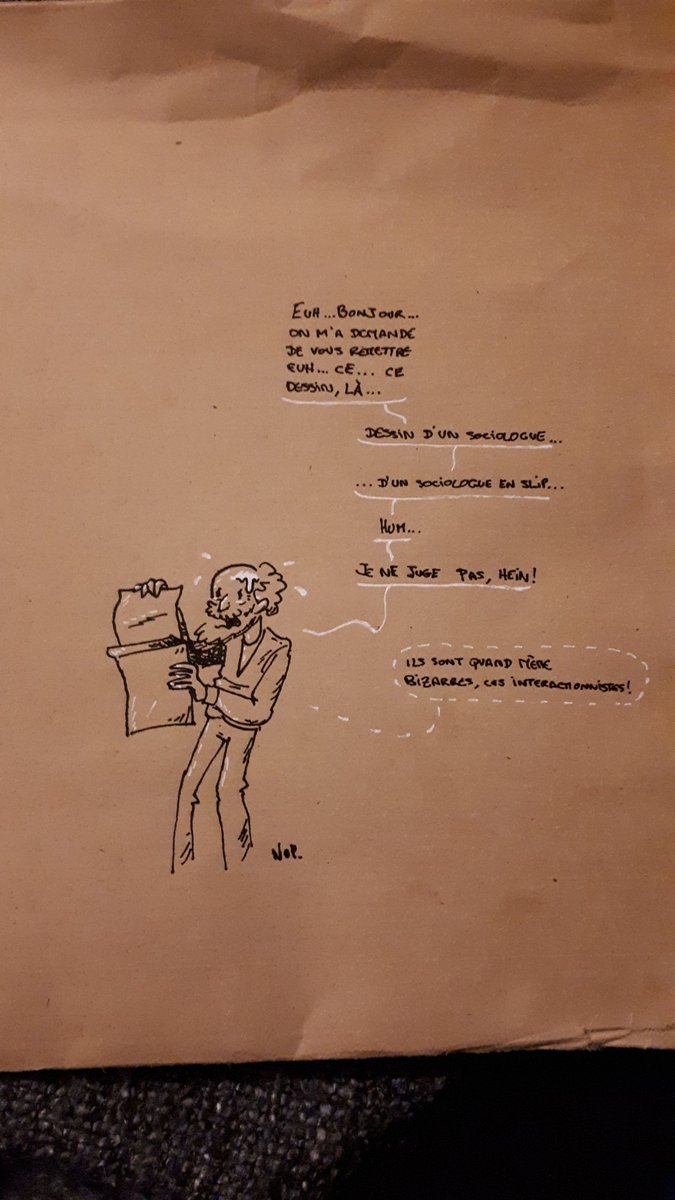 EUH...BONJOUR...
ON M'A DEMANDÉ
DE VOUS REMETTRE
EUH... CE... CE
DESSIN, LÀ...
DESSIN D'UN SOCIOLOGUE...
...D'UN SOCIOLOGUE EN SLIP...
HUM...
JE NE JUGE PAS, HEIN!
ILS SONT QUAND MÊME
BIZARRES, CES INTERACTIONNISTES!
NOP.